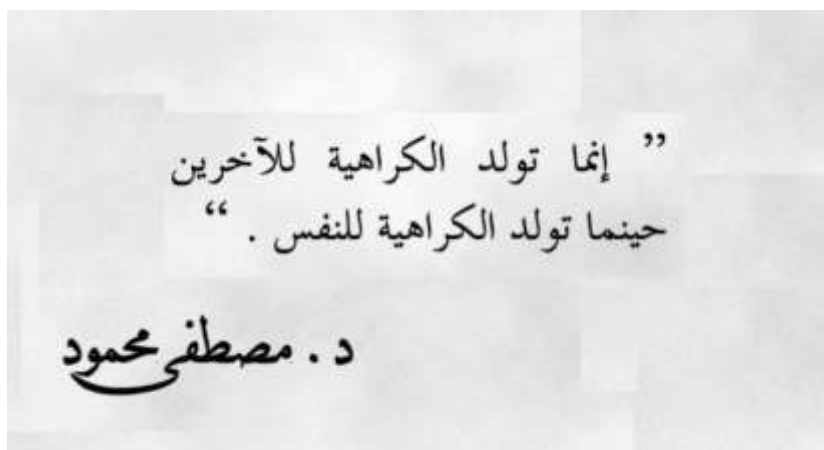 ” إنما تولد الكراهية للآخرين
حينما تولد الكراهية للنفس . “
د . مصطفى محمود